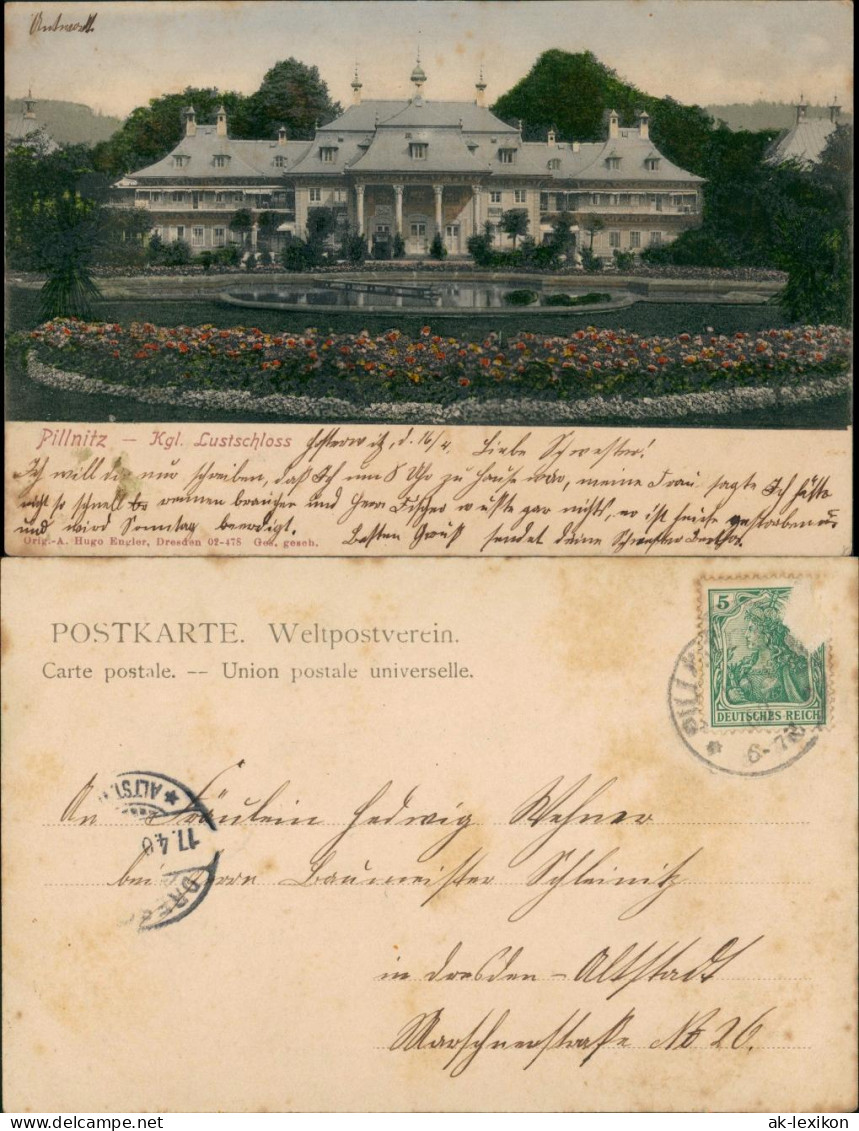 Antwort.
Pillnitz — Kgl. Lustschloss
Hosterwitz, d. 16/4. Liebe Schwester!
Ich will dir nur schreiben, daß Ich um 8 Uhr zu Hause war, meine Frau sagte Ich hätte
nicht so schnell rennen brauchen und Herr Fischer wußte gar nichts, er ist heute gestorben u.
und wird Sonntag beerdigt.
Besten Gruß sendet deine Schwester
Orig.-A. Hugo Engler, Dresden 02-478 Ges. gesch.
POSTKARTE. Weltpostverein.
Carte postale. -- Union postale universelle.
5
DEUTSCHES REICH
PILLN
6-7N
ALTST.
17.4.0
DRES
An Fräulein Hedwig Wehner
bei Herrn Baumeister Schleinitz
in Dresden-Altstadt
Marschnerstraße No 26.
ak-lexikon